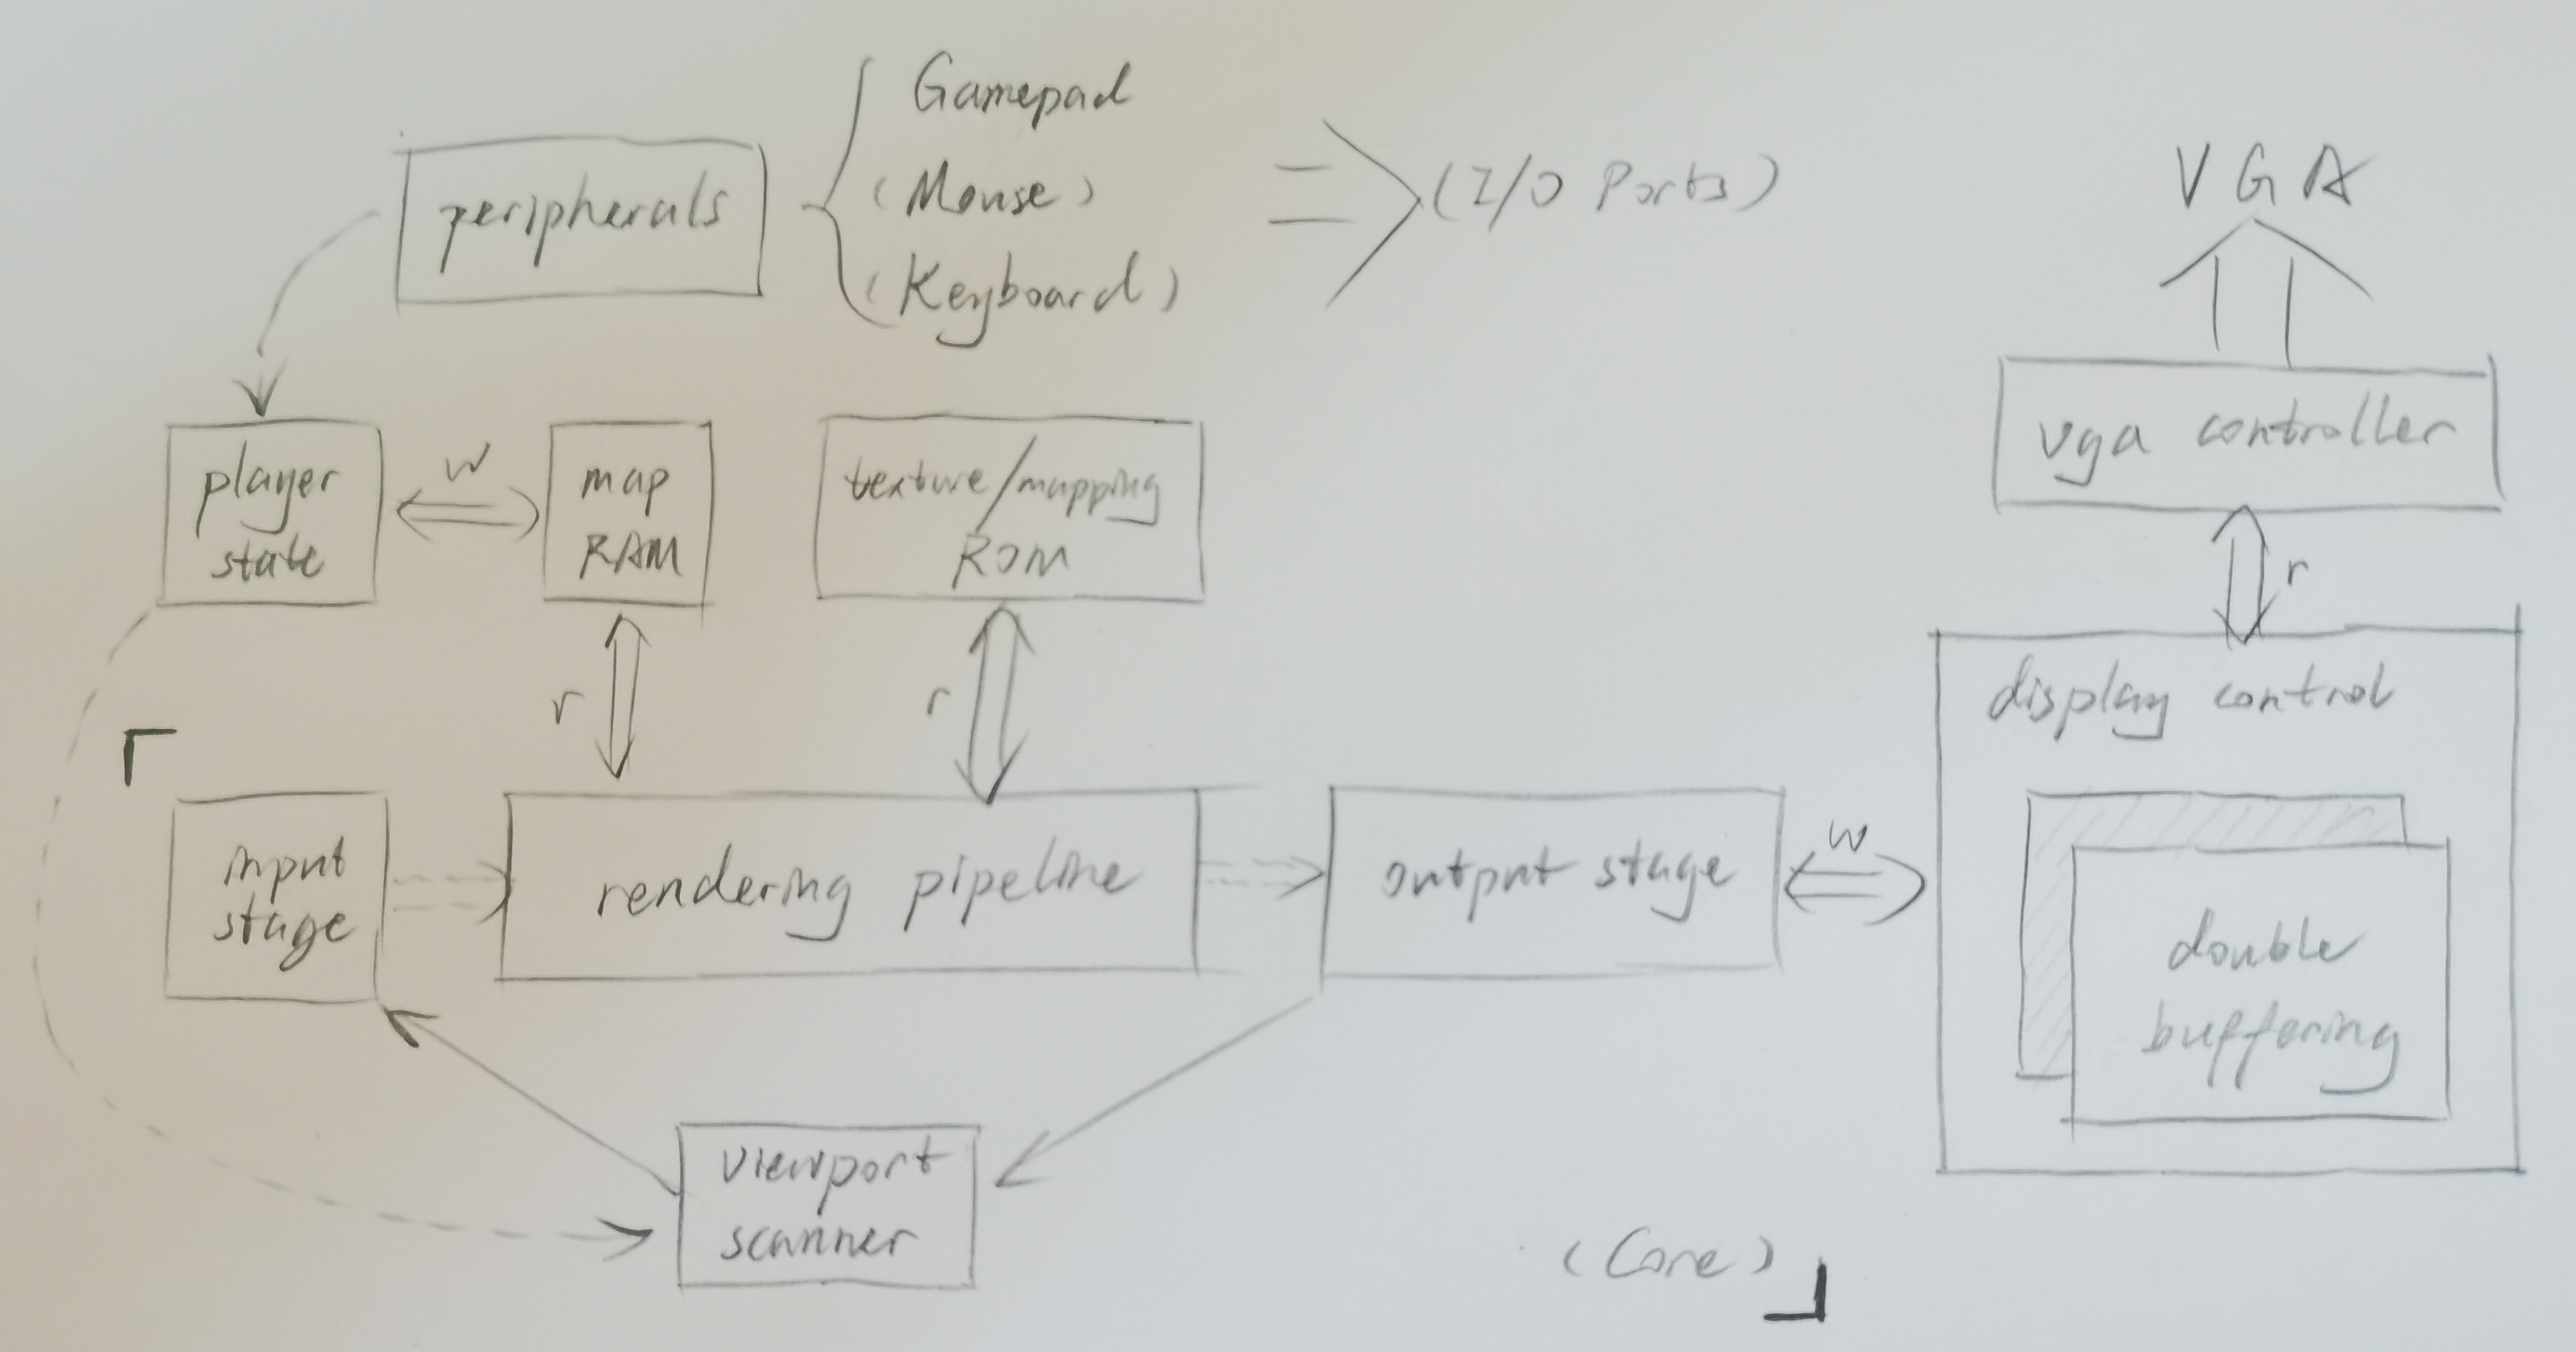 Gamepad
peripherals
(Mouse)
(I/O Ports)
(Keyboard)
VGA
player
state
w
map
RAM
texture/mapping
ROM
vga controller
r
r
r
display control
input
stage
rendering pipeline
output stage
w
double
buffering
viewport
scanner
(Core)